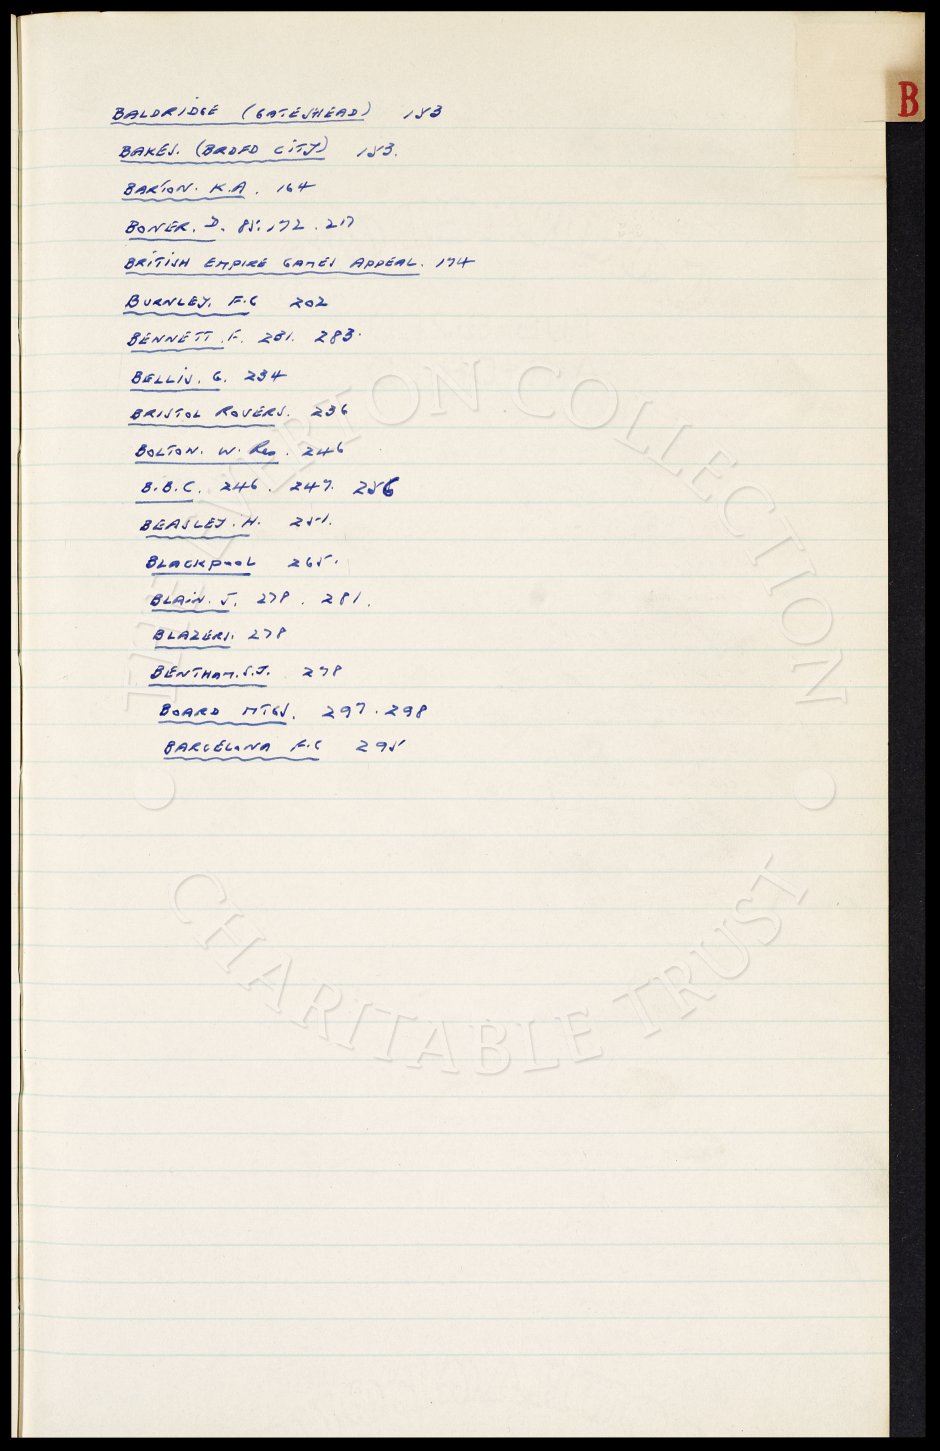 B
BALDRIDGE (GATESHEAD) 153
BAKES. (BRDFD CITY) 153.
BARTON. K.A. 164
BONER. D. 85. 172. 217
BRITISH EMPIRE GAMES APPEAL. 174
BURNLEY. F.C 202
BENNETT. F. 281. 283.
BELLIS. G. 234
BRISTOL ROVERS. 236
BOLTON. W. Res. 246
B.B.C. 246. 247. 256
BEASLEY. H. 251.
BLACKPOOL 265.
BLAIN. J. 278. 281.
BLAZERS. 278
BENTHAM. S.J. 278
BOARD MTGS. 297. 298
BARCELONA F.C 295
THE EVERTON COLLECTION
CHARITABLE TRUST